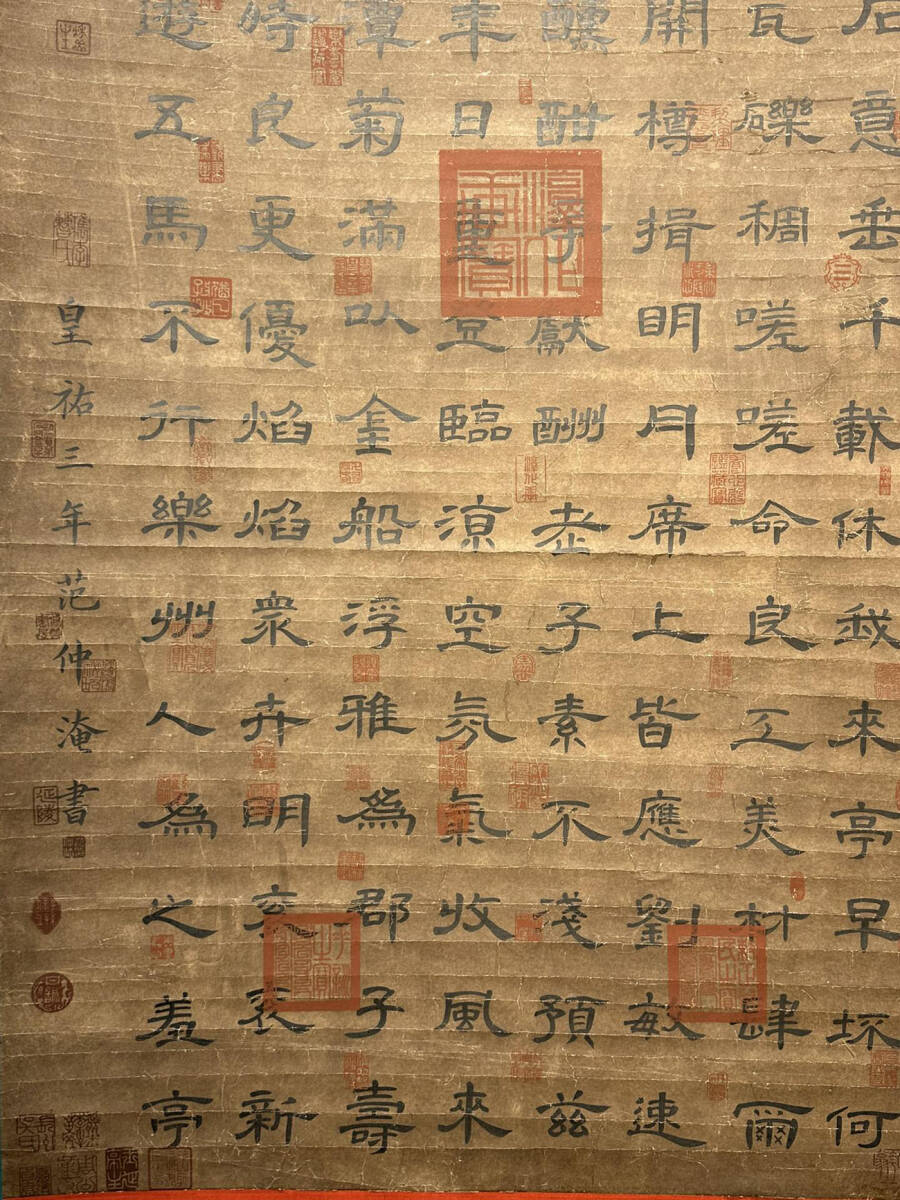 意垂千載休我來亭早坏何
瓦礫稠嗟嗟命良工美材肆爾
開樽揖明月席上皆應劉敏速
醺酣獻酬老子素不淺預茲
日重登臨涼空氛氣收風來
潭菊滿以金船浮雅為郡子壽
時良更優焰焰眾卉明新
遊五馬不行樂州人為之羞亭
皇祐三年范仲淹書